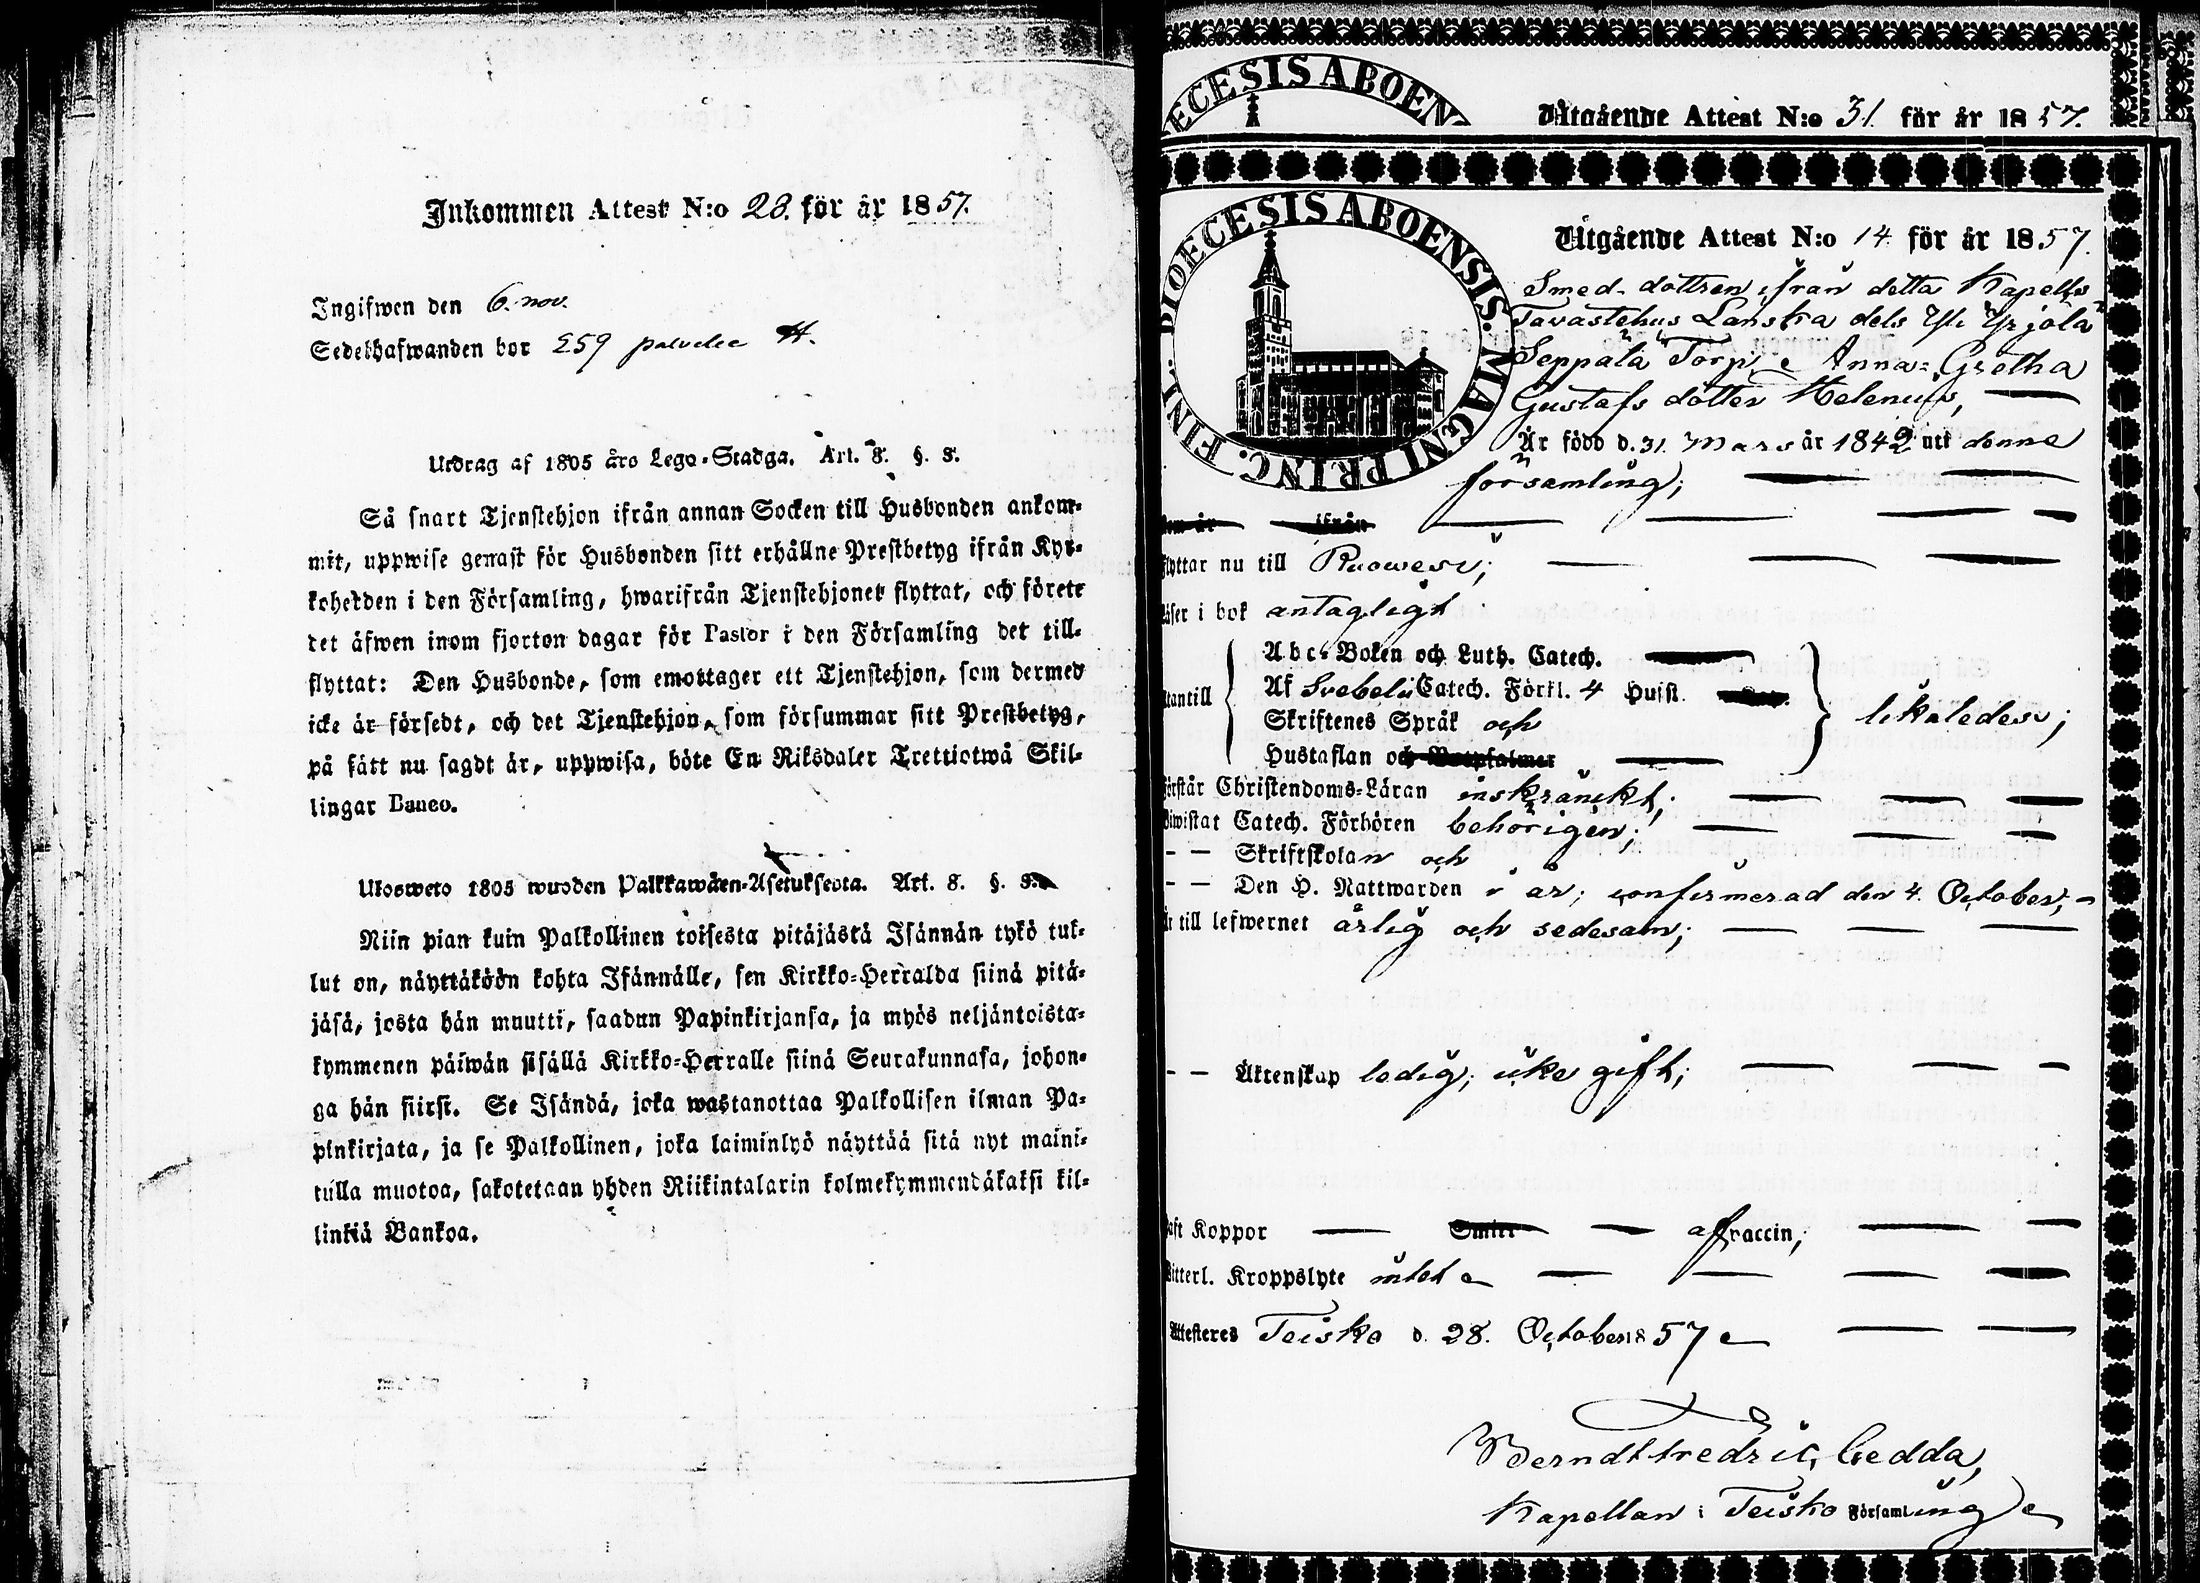 Inkommen Attest N:o 28. för år 1857.
Ingifwen den 6. nov.
Sedelhafwanden bor 259 palvelee
Utdrag af 1805 års Lego-Stadga. Art. 8. §. 8.
Så snart Tjenstehjon ifrån annan Socken till Husbonden ankom-
mit, uppwise genast för Husbonden sitt erhållne Prestbetyg ifrån Kyr-
koherden i den Församling, hwarifrån Tjenstehjonet flyttat, och förete
det äfwen inom fjorton dagar för Pastor i den Församling det till-
flyttat: Den Husbonde, som emottager ett Tjenstehjon, som dermed
icke är försedt, och det Tjenstehjon, som försummar sitt Prestbetyg,
på sätt nu sagdt är, uppwisa, böte En Riksdaler Trettiotwå Skil-
lingar Banco.
Ulosweto 1805 wuoden Palkkawäen-Asetuksesta. Art. 8. §. 8.
Niin pian kuin Palkollinen toisesta pitäjästä Isännän tykö tul-
lut on, näyttäköön kohta Isännälle, sen Kirkko-Herralda siinä pitä-
jäsä, josta hän muutti, saadun Papinkirjansa, ja myös neljäntoista-
kymmenen päiwän sisällä Kirkko-Herralle siinä Seurakunnasa, johon-
ga hän siirsi. Se Isändä, joka wastanottaa Palkollisen ilman Pa-
pinkirjata, ja se Palkollinen, joka laiminlyö näyttää sitä nyt maini-
tulla muotoa, sakotetaan yhden Riikintalarin kolmekymmendäkaksi kil-
linkiä Bankoa.
ECESIS ABOEN
Utgående Attest N:o 31. för år 1857.
DIOECESIS ABOENSIS. MAGNI PRINC. FINL.
Utgående Attest N:o 14. för år 1857.
Smed-dottren ifrån detta Kapells
Tavastehus Lanska dels Yli Yrjölä
Seppälä Torp, Anna-Gretha
Gustafs dotter Helenius,
Är född d. 31. Mars år 1842 uti denna
församling;
som är ifrån
flyttar nu till Ruowesi;
läser i bok antagligt
utantill
Abc-Boken och Luth. Catech.
Af Svebelii Catech. Förkl. 4 Hufst.
Skriftenes Språk och
Hustaflan och Botpsalmer
likaledes;
förstår Christendoms-Läran inskränckt;
biwistat Catech. Förhören behörigen;
- - Skriftskolan och
- - Den H. Nattwarden i år; confirmerad den 4. October;
är till lefwernet ärlig och sedesam;
- - Äktenskap ledig; icke gift;
haft Koppor af vaccin;
witterl. Kroppslyte intet
Attesteres Teisko d. 28. October 1857
Berndt Fredric Gedda,
Kapellan i Teisko Församling